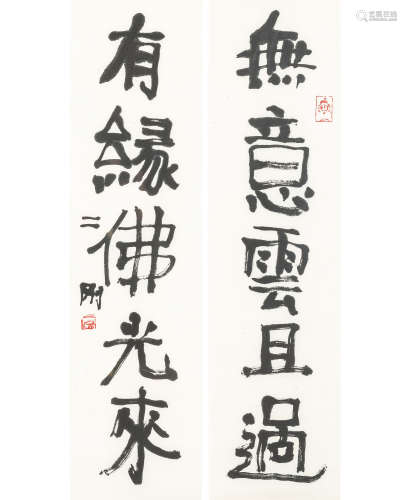 無意雲且過
有緣佛光來
二剛